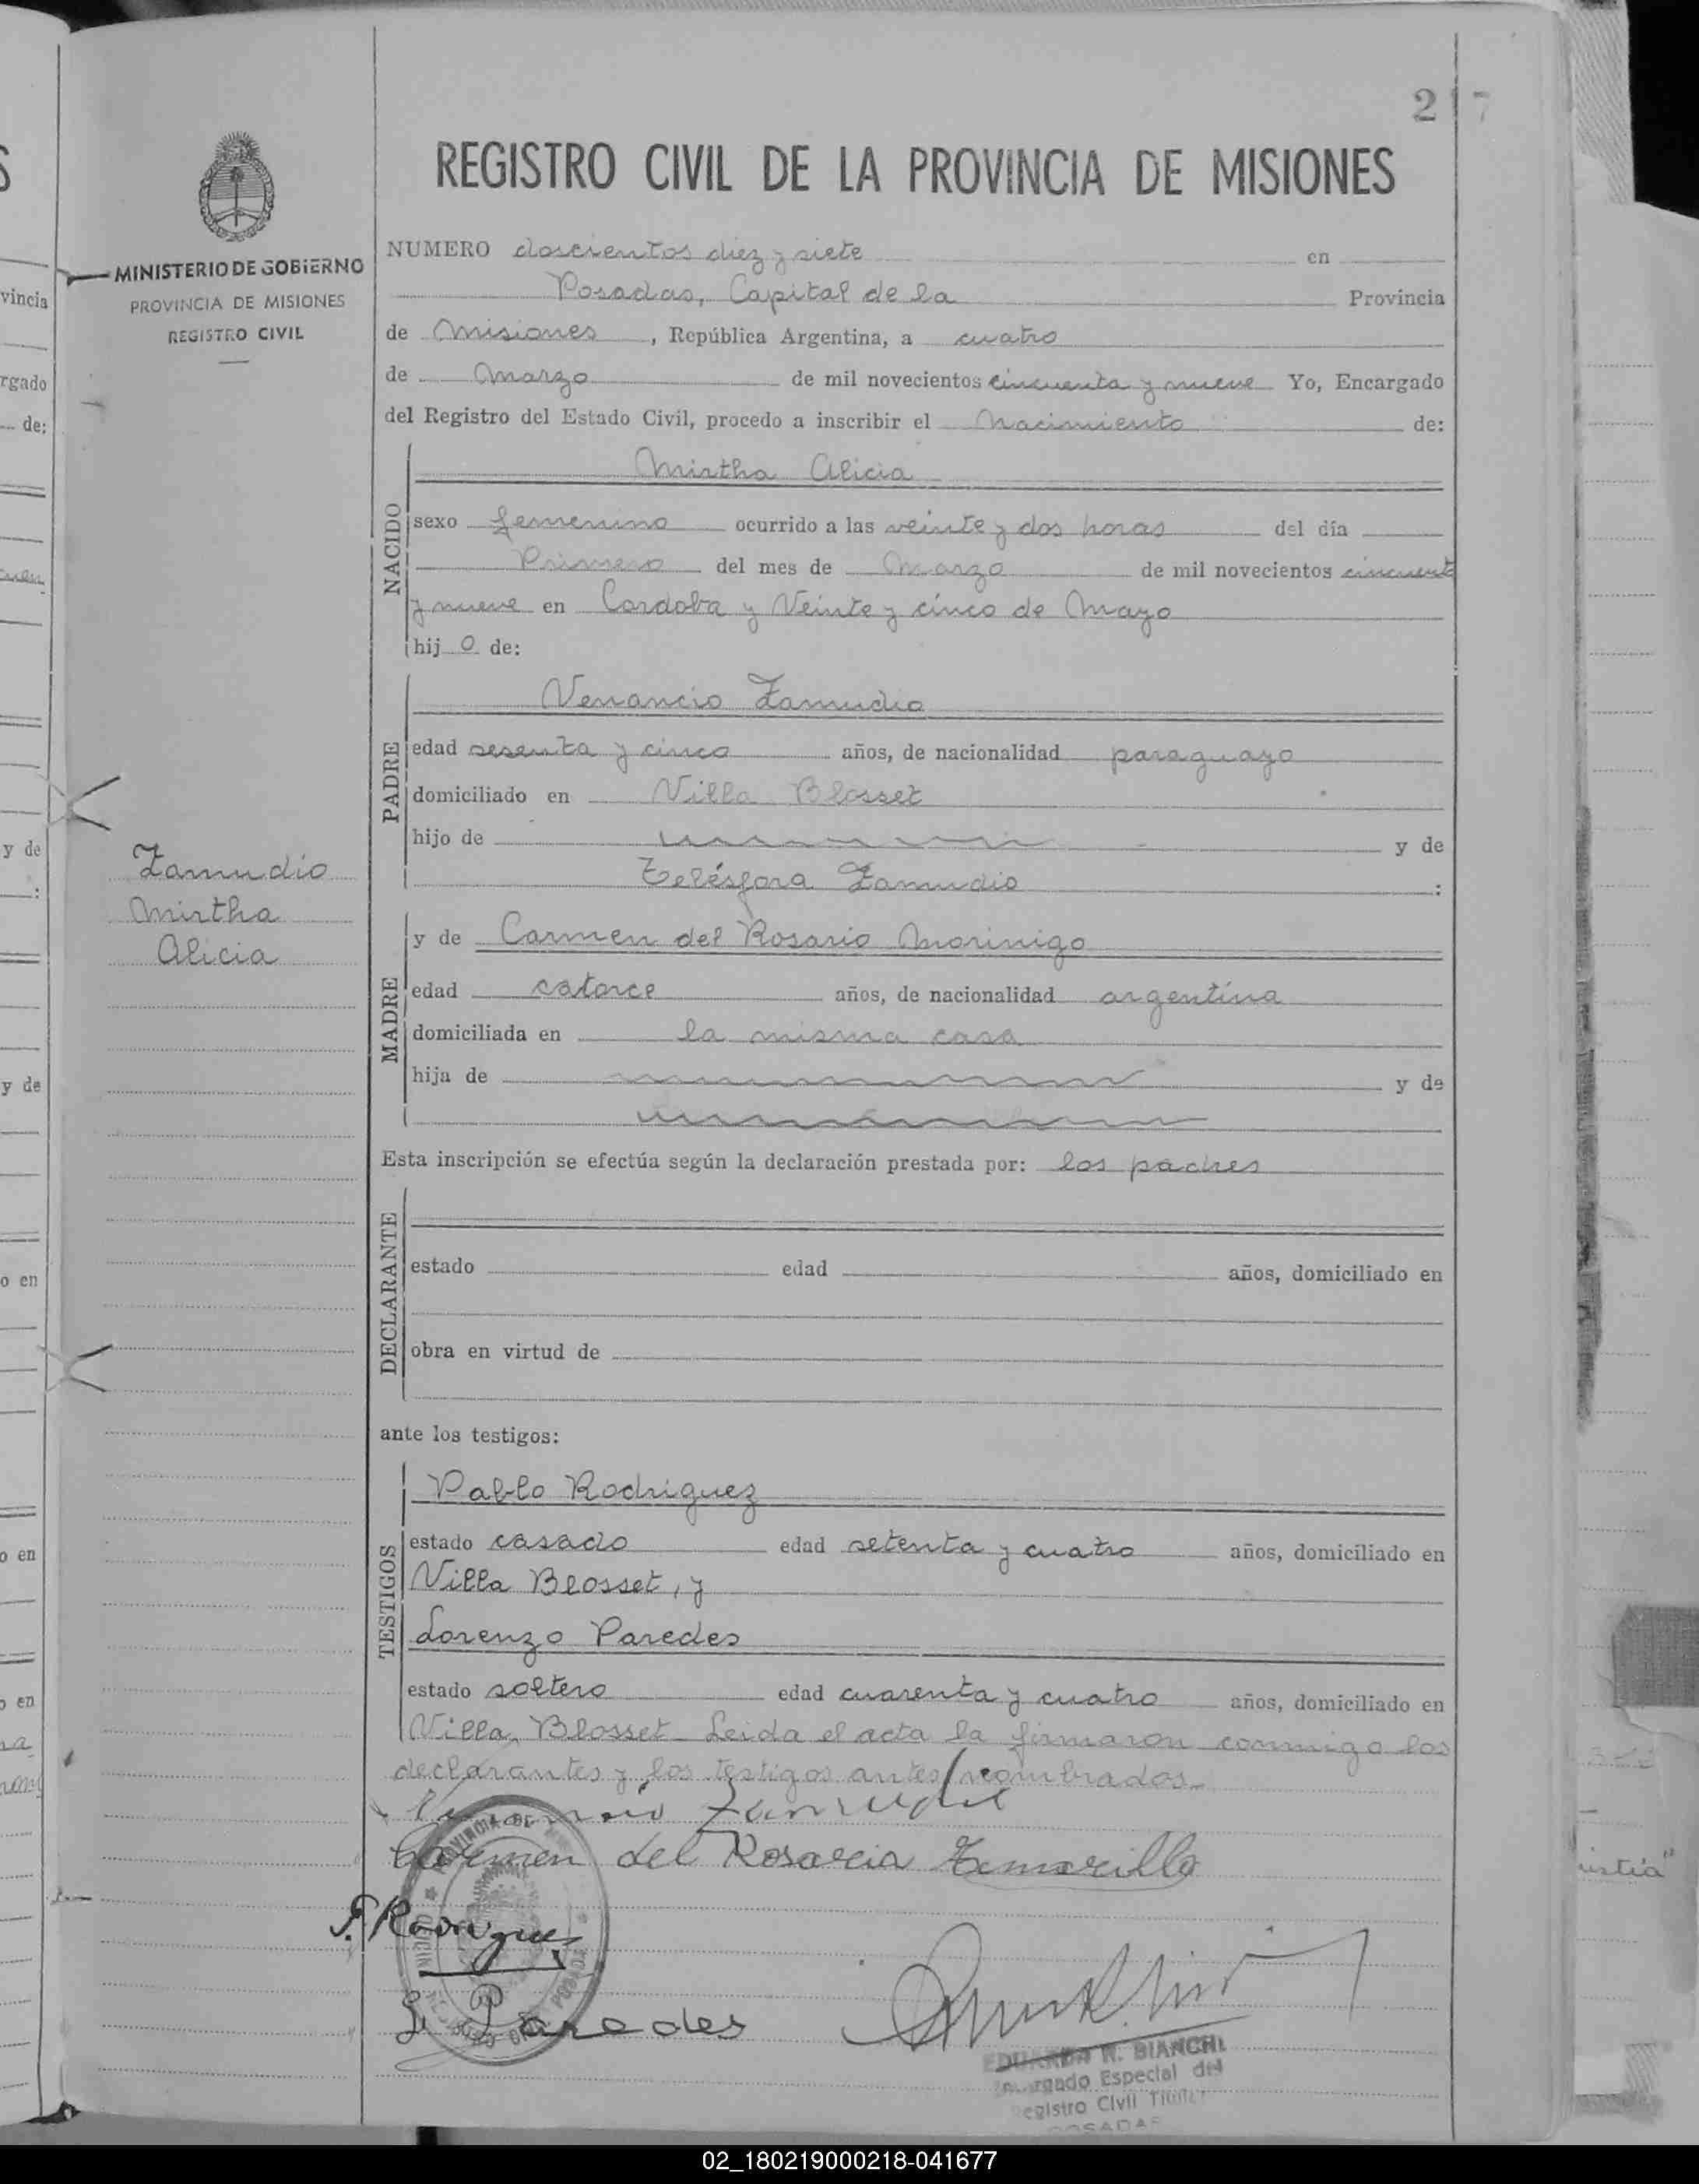 217
REGISTRO CIVIL DE LA PROVINCIA DE MISIONES
MINISTERIO DE GOBIERNO
PROVINCIA DE MISIONES
REGISTRO CIVIL
NUMERO doscientos diez y siete en
Posadas, Capital de la Provincia
de Misiones, República Argentina, a cuatro
de Marzo de mil novecientos cincuenta y nueve Yo, Encargado
del Registro del Estado Civil, procedo a inscribir el Nacimiento de:
NACIDO
Mirtha Alicia
sexo femenino ocurrido a las veinte y dos horas del día
Primero del mes de Marzo de mil novecientos cincuenta
y nueve en Cordoba y Veinte y cinco de Mayo
hij o de:
PADRE
Venancio Zamudio
edad sesenta y cinco años, de nacionalidad paraguayo
domiciliado en Villa Blosset
hijo de y de
Telésfora Zamudio :
Zamudio
Mirtha
Alicia
MADRE
y de Carmen del Rosario Morinigo
edad catorce años, de nacionalidad argentina
domiciliada en la misma casa
hija de y de
Esta inscripción se efectúa según la declaración prestada por: los padres
DECLARANTE
estado edad años, domiciliado en
obra en virtud de
ante los testigos:
TESTIGOS
Pablo Rodriguez
estado casado edad setenta y cuatro años, domiciliado en
Villa Blosset, y
Lorenzo Paredes
estado soltero edad cuarenta y cuatro años, domiciliado en
Villa Blosset Leida el acta la firmaron conmigo los
declarantes y los testigos antes nombrados.
Carmen del Rosario
P. Rodrigues
L. Paredes
BIANCHI
Encargado Especial del
Registro Civil Titular
POSADAS
02_180219000218-041677